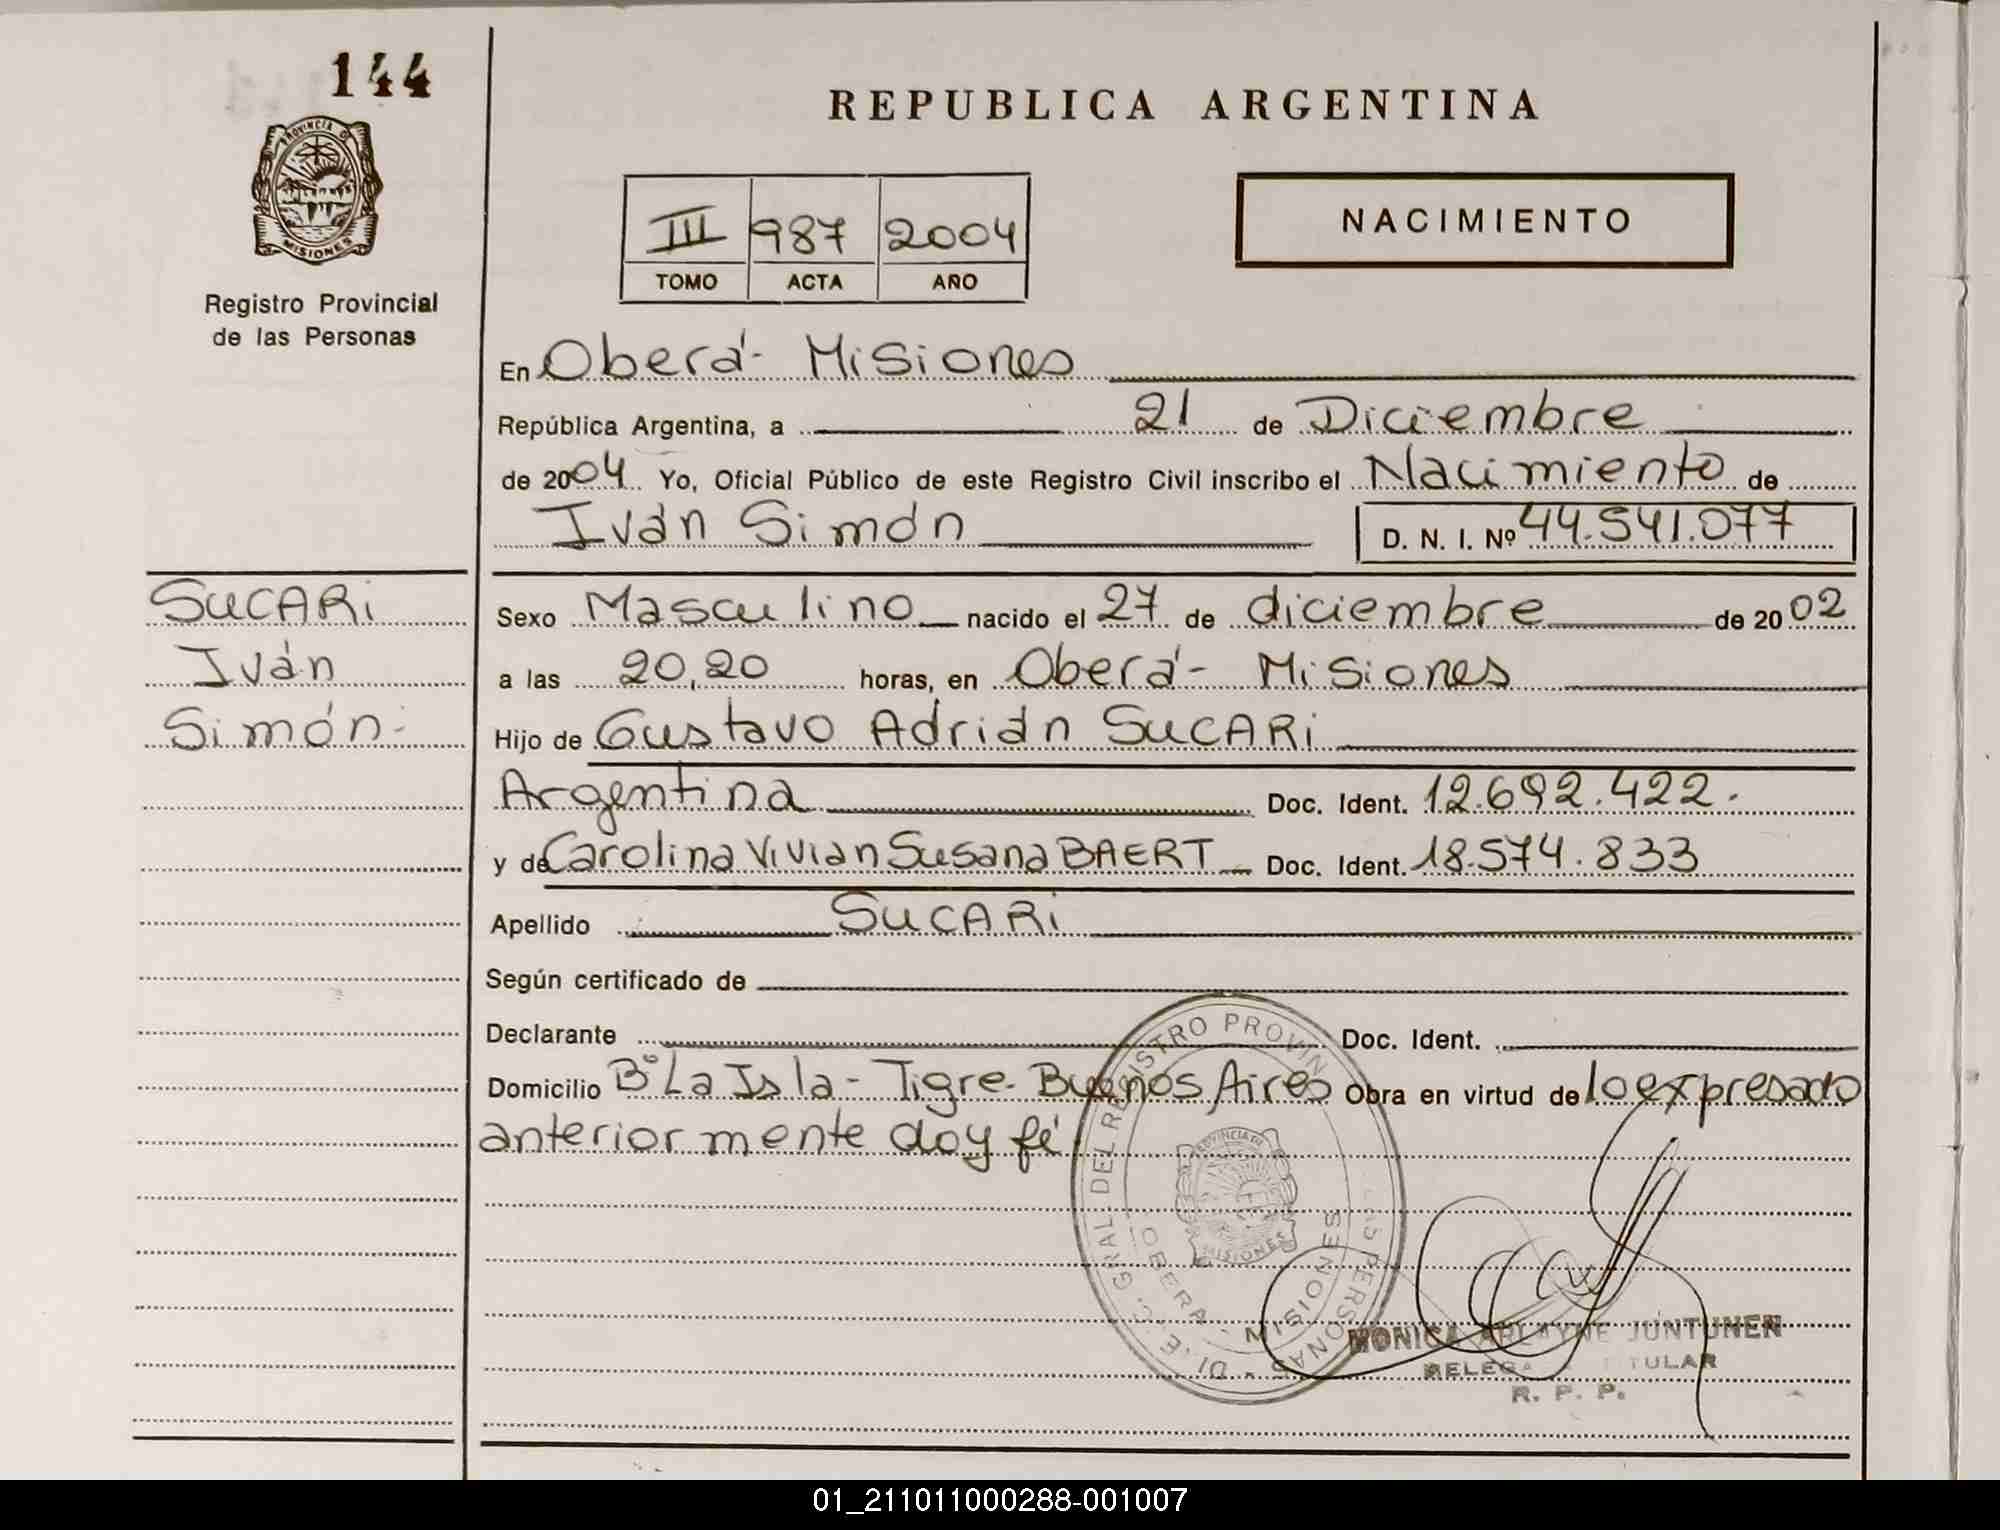 144
PROVINCIA DE
MISIONES
Registro Provincial
de las Personas
REPUBLICA ARGENTINA
III 987 2004
TOMO ACTA AÑO
NACIMIENTO
En Oberá - Misiones
República Argentina, a 21 de Diciembre
de 2004 Yo, Oficial Público de este Registro Civil inscribo el Nacimiento de
Iván Simón D. N. I. Nº 44.541.077
SUCARi
Iván
Simón-
Sexo Masculino nacido el 27 de diciembre de 2002
a las 20,20 horas, en Oberá - Misiones
Hijo de Gustavo Adrián SUCARi
Argentina Doc. Ident. 12.692.422.
y de Carolina Vivian Susana BAERT Doc. Ident. 18.574.833
Apellido SUCARi
Según certificado de
Declarante Doc. Ident.
Domicilio Bº La Isla - Tigre - Buenos Aires Obra en virtud de lo expresado
anteriormente doy fé
GRAL. DEL REGISTRO PROVIN
LAS PERSONAS
PROVINCIA DE
MISIONES
OBERA - MISIONES
MONICA ARLAYNE JUNTUNEN
TITULAR
R. P. P.
01_211011000288-001007